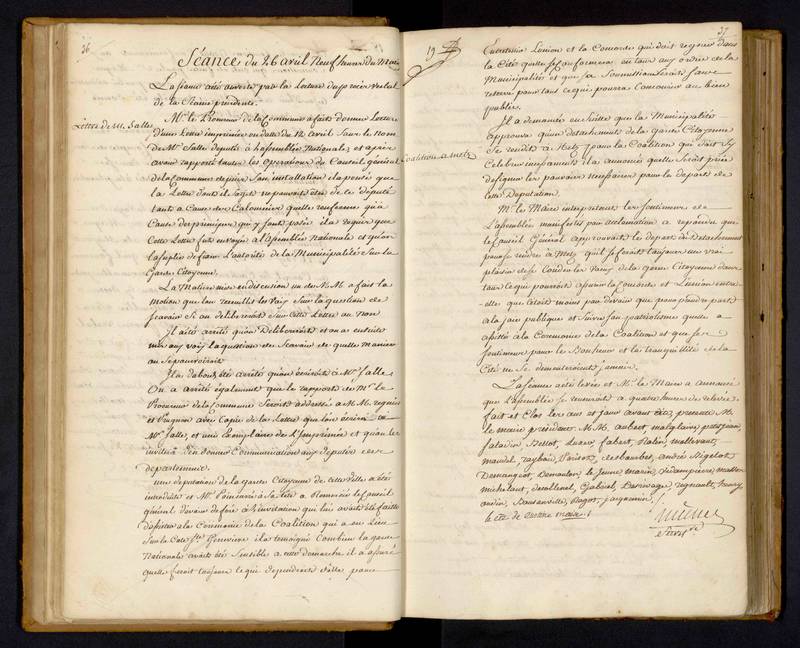 36
Séance du 26 avril Neuf heures du Matin
La séance a été ouverte par la Lecture du procès verbal
de la Séance précédente.
Lettre de M. Salle
Mr. le Procureur de la Commune a fait donner Lecture
d'une Lettre imprimée en date du 12 avril sous le nom
de Mr. Salle député à L'assemblée Nationale, et après
avoir rapporté toutes les opérations du Conseil général
de la Commune depuis son installation il a pensé que
la Lettre dont il s'agit ne pouvoit être de le député
tant à cause des Calomnies qu'elle renferme qu'à
Cause des principes qui y sont posés il a requis que
Cette Lettre fut envoyée a l'assemblée Nationale et qu'on
la supplie de fixer L'autorité de la Municipalité sur la
Garde Citoyenne.
La Matiere mise en discution un de M.M. a fait la
motion que l'on recueille les Voix sur la question de
scavoir si on delibereroit sur Cette Lettre ou non
Il a été arrêté qu'on Délibéreroit et on a ensuite
mis aux voix la question de Scavoir de quelle maniere
on se pourvoiroit
Il a d'abord été arrêté qu'on écriroit à Mr. Salle.
On a arrêté également que le rapport de Mr. le
Procureur de la Commune seroit addressé a M.M. regnier
et Prugnon avec Copie de la Lettre que l'on écrira a
Mr. Salle, et un Exemplaire de L'Imprimée et qu'on les
invitera d'en donner Communication aux députés du
departement.
une deputation de la garde Citoyenne de cette Ville a été
introduite et Mr. Poincaré à sa tête a Remercié le Conseil
général d'avoir deferé à L'invitation qui lui avoit été faitte
d'assister a la Ceremonie de la Coalition qui a eu Lieu
Sur la Cote Ste. Genevieve il a temoigné Combien la garde
Nationale avoit été sensible a cette demarche il a assuré
qu'elle feroit toujours ce qui dependroit d'elle pour
37
19
Entretenir L'union et la Concorde qui doit regner dans
la Cité qu'elle se conformera en tout aux ordres de la
Municipalité et que sa Soumission sera sans
reserve pour tout ce qui pourra Concourir au bien
publique.
Coalition a metz
Il a demandé en suite que la Municipalité
approuva qu'un detachement de la garde Citoyenne
se rendit à Metz pour la Coalition qui doit s'y
Celebrer incessament il a annoncé qu'elle seroit priée
de signer les pouvoirs necessaires pour le depart de
cette Deputation.
Mr. le Maire interpretant les sentimens de
L'assemblée manifestés par acclamation a répondu que
le Conseil Général approuvoit le depart du Detachement
pour se rendre à Metz qu'il se feroit toujours un vrai
plaisir de Conder les Vœux de la garde Citoyenne dans
tout ce qui pourroit assurer la Concorde et L'union entre
elle que c'etoit moins par devoir que pour prendre part
a la joie publique et suivre son patriotisme qu'elle a
assisté a la Ceremonie de la Coalition et que ses
sentimens pour le Bonheur et la tranquillité de la
Cité ne se dementiroient jamais.
La séance a été levée et Mr. le Maire a annoncé
que L'assemblée se tiendroit a quatre heures de relevée.
fait et Clos les an et jour avant dits, presents M.
le maire président M.M. aubert, malglaive,
saladin, Nollot, Luxer, fabert, Rolin, mallevaut,
mandel, Parisot, andré Nigelot
Demangeot, Demoulon le jeune, marin, mathieu
michelant, Gabriel, regnault, henry
Beauzonville, Ragot, jacqueminot